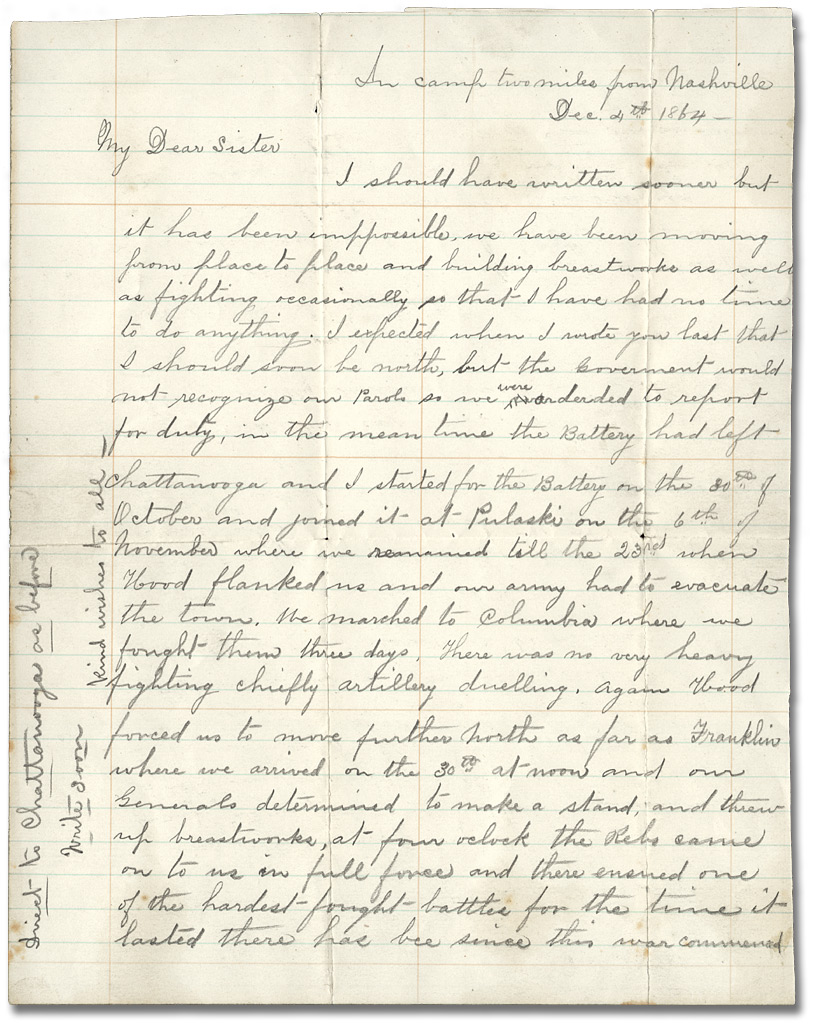 In camp two miles from Nashville
Dec. 4th 1864 –
My Dear Sister
I should have written sooner but
it has been imppossible, we have been moving
from place to place and building breastworks as well
as fighting occasionally so that I have had no time
to do anything. I expected when I wrote you last that
I should soon be north, but the Goverment would
not recognize our Parols so we were orderded to report
for duty, in the mean time the Battery had left
Chattanooga and I started for the Battery on the 30th of
October and joined it at Pulaski on the 6th of
November where we remained till the 23rd when
Hood flanked us and our army had to evacuate
the town. We marched to Columbia where we
fought them three days. There was no very heavy
fighting chiefly artillery duelling. Again Hood
forced us to move further North as far as Franklin
where we arrived on the 30th at noon and our
Generals determined to make a stand, and threw
up breastworks, at four oclock the Rebs came
on to us in full force and there ensued one
of the hardest fought battles for the time it
lasted there has bee since this war commenced
Kind wishes to all –
Write soon
Direct to Chattanooga as before